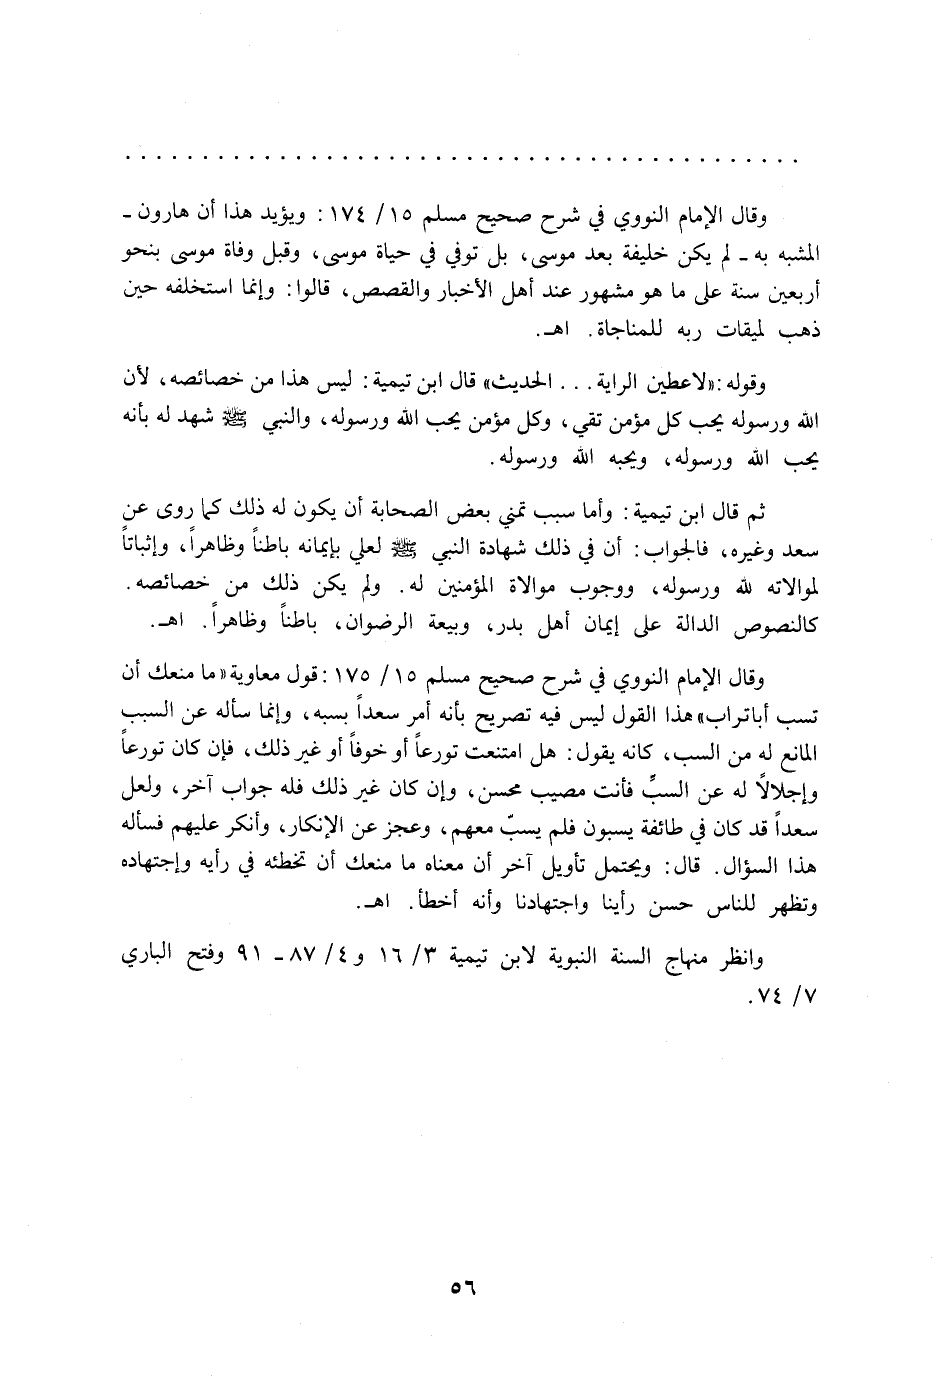 . . . . . . . . . . . . . . . . . . . . . . . . . . . . . . . . . . . . . . . . . . . .
وقال الإمام النووي في شرح صحيح مسلم ١٥/ ١٧٤ : ويؤيد هذا أن هارون ـ
المشبه به ـ لم يكن خليفة بعد موسى، بل توفي في حياة موسى، وقبل وفاة موسى بنحو
أربعين سنة على ما هو مشهور عند أهل الأخبار والقصص، قالوا: وإنما استخلفه حين
ذهب لميقات ربه للمناجاة. اهـ.
وقوله: «لاعطين الراية . . . الحديث» قال ابن تيمية: ليس هذا من خصائصه، لأن
الله ورسوله يحب كل مؤمن تقي، وكل مؤمن يحب الله ورسوله، والنبي ﷺ شهد له بأنه
يحب الله ورسوله، ويحبه الله ورسوله.
ثم قال ابن تيمية: وأما سبب تمني بعض الصحابة أن يكون له ذلك كما روى عن
سعد وغيره، فالجواب: أن في ذلك شهادة النبي ﷺ لعلي بإيمانه باطناً وظاهراً، وإثباتاً
لموالاته لله ورسوله، ووجوب موالاة المؤمنين له. ولم يكن ذلك من خصائصه.
كالنصوص الدالة على إيمان أهل بدر، وبيعة الرضوان، باطناً وظاهراً. اهـ.
وقال الإمام النووي في شرح صحيح مسلم ١٥/ ١٧٥ : قول معاوية «ما منعك أن
تسب أباتراب» هذا القول ليس فيه تصريح بأنه أمر سعداً بسبه، وإنما سأله عن السبب
المانع له من السب، كانه يقول: هل امتنعت تورعاً أو خوفاً أو غير ذلك، فإن كان تورعاً
وإجلالاً له عن السبِّ فأنت مصيب محسن، وإن كان غير ذلك فله جواب آخر، ولعل
سعداً قد كان في طائفة يسبون فلم يسبّ معهم، وعجز عن الإنكار، وأنكر عليهم فسأله
هذا السؤال. قال: ويحتمل تأويل آخر أن معناه ما منعك أن تخطئه في رأيه وإجتهاده
وتظهر للناس حسن رأينا واجتهادنا وأنه أخطأ. اهـ.
وانظر منهاج السنة النبوية لابن تيمية ٣/ ١٦ و٤/ ٨٧ ـ ٩١ وفتح الباري
٧/ ٧٤.
٥٦